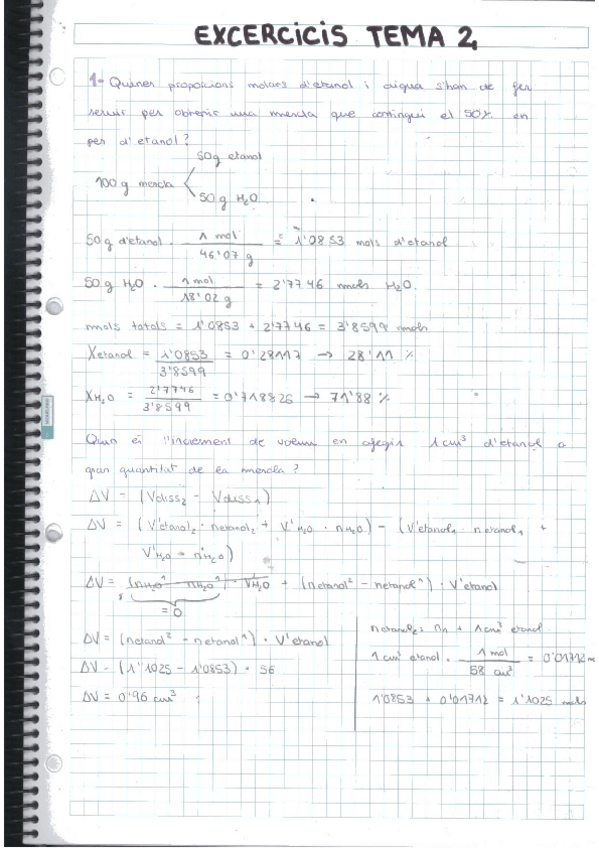 EXCERCICIS TEMA 2,
1- Quines proporcions molars d'etanol i aigua s'han de fer
servir per obtenir una mescla que contingui el 50% en
pes d'etanol?
50g etanol
100g mescla
50g H2O
50g d'etanol · 1 mol / 46'07 g = 1'0853 mols d'etanol
50g H2O · 1 mol / 18'02 g = 2'7746 mols H2O.
mols totals = 1'0853 + 2'7746 = 3'8599 mols
Xetanol = 1'0853 / 3'8599 = 0'28117 → 28'11 %
XH2O = 2'7746 / 3'8599 = 0'718826 → 71'88 %
Quin és l'increment de volum en afegir 1cm³ d'etanol a
gran quantitat de la mescla?
ΔV = (Vdiss2 - Vdiss1)
ΔV = (V'etanol2 · netanol2 + V'H2O · nH2O) - (V'etanol1 · netanol1 +
V'H2O = n'H2O)
ΔV = (nH2O^1 - nH2O^1) · VH2O + (netanol² - netanol^1) · V'etanol
= 0
ΔV = (netanol² - netanol^1) · V'etanol
ΔV = (1'1025 - 1'0853) · 56
ΔV = 0'96 cm³
netanol2: n1 + 1cm³ etanol
1cm³ etanol · 1 mol / 58 cm³ = 0'01712
1'0853 + 0'01712 = 1'1025 mols